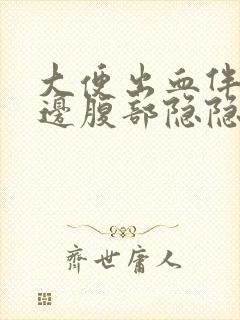 大便出血伴
邊腹部隐隐
齐世庸人